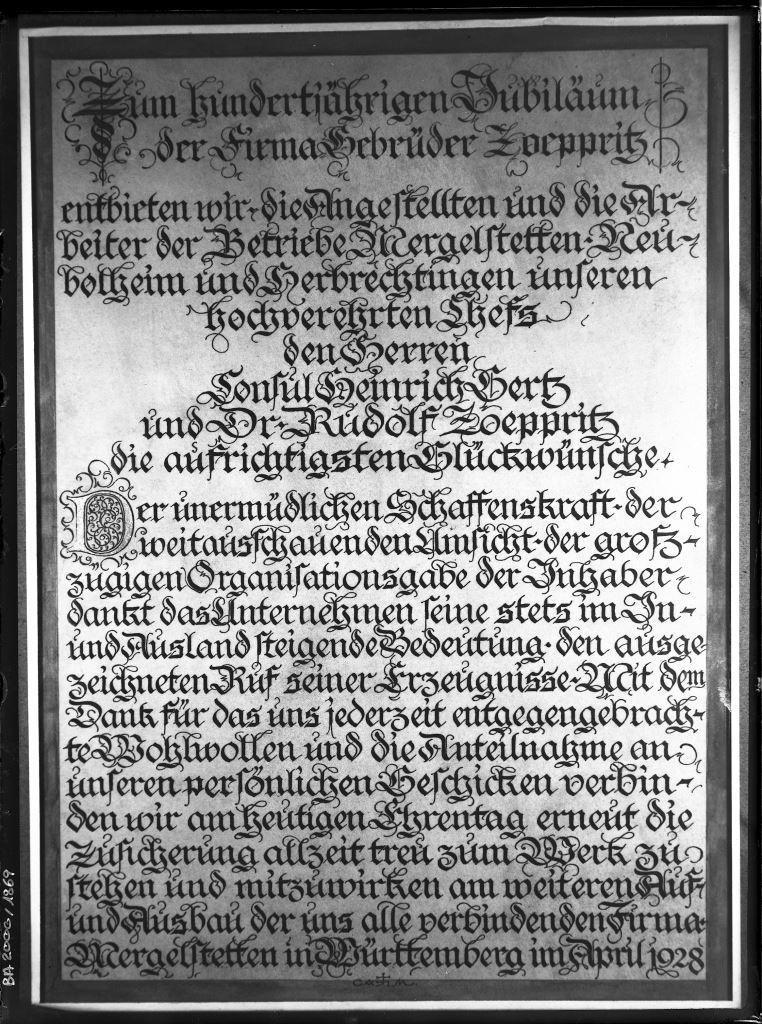 Zum hundertjährigen Jubiläum
der Firma Gebrüder Zoeppritz
entbieten wir, die Angestellten und die Ar-
beiter der Betriebe Mergelstetten·Neu-
bolheim und Herbrechtingen unseren
hochverehrten Chefs
den Herren
Consul Heinrich Gertz
und Dr. Rudolf Zoeppritz
die aufrichtigsten Glückwünsche.
Der unermüdlichen Schaffenskraft·der
weitausschauenden Umsicht·der groß-
zügigen Organisationsgabe der Inhaber
dankt das Unternehmen seine stets im In-
und Ausland steigende Bedeutung·den ausge
zeichneten Ruf seiner Erzeugnisse·Mit dem
Dank für das uns jederzeit entgegengebrach-
te Wohlwollen und die Anteilnahme an
unseren persönlichen Geschicken verbin-
den wir am heutigen Ehrentag erneut die
Zusicherung allzeit treu zum Werk zu
stehen und mitzuwirken am weiteren Auf-
und Ausbau der uns alle verbindenden Firma·
Mergelstetten in Württemberg im April 1928
BA 2000/1869